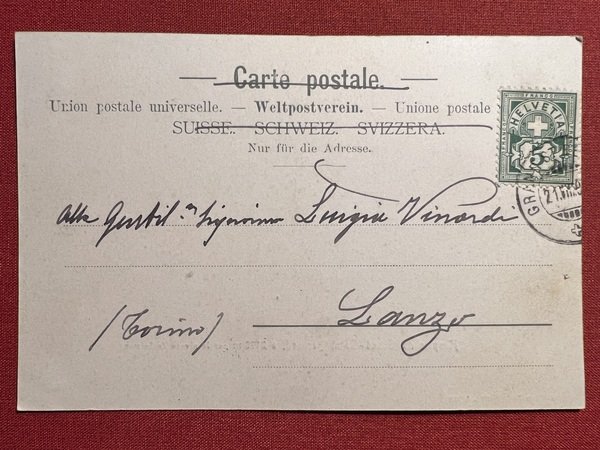 Carte postale.
Union postale universelle. — Weltpostverein. — Unione postale
SUISSE. SCHWEIZ. SVIZZERA.
Nur für die Adresse.
FRANCO
HELVETIA
5
GRA
21.VII.
Alla Gentil.ma Signorina Luigia Vinardi
Lanzo
(Torino)